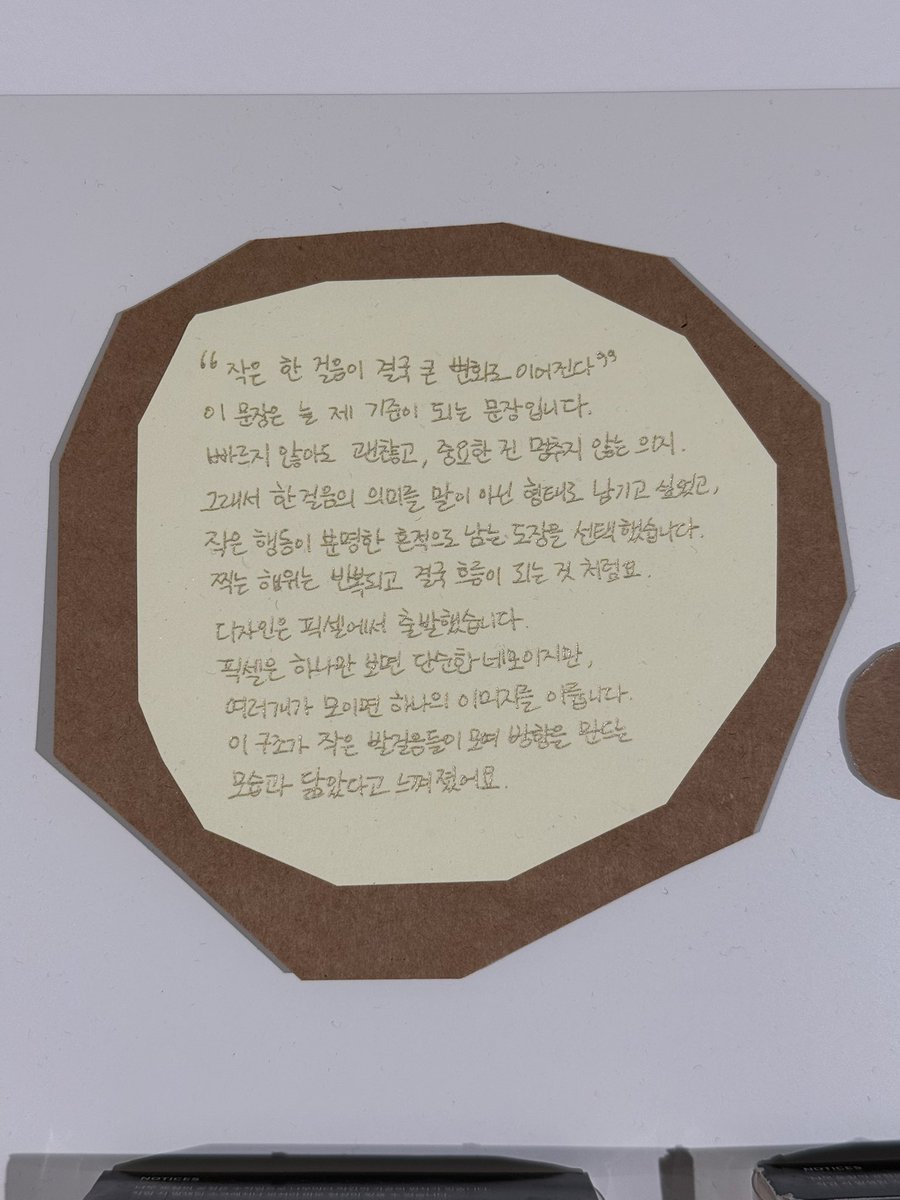 “작은 한 걸음이 결국 큰 변화로 이어진다”
이 문장은 늘 제 기준이 되는 문장입니다.
빠르지 않아도 괜찮고, 중요한 건 멈추지 않는 의지.
그래서 한 걸음의 의미를 말이 아닌 형태로 남기고 싶었고,
작은 행동이 분명한 흔적으로 남는 도장을 선택했습니다.
찍는 행위는 반복되고 결국 흐름이 되는 것 처럼요.
디자인은 픽셀에서 출발했습니다.
픽셀은 하나만 보면 단순한 네모이지만,
여러개가 모이면 하나의 이미지를 이룹니다.
이 구조가 작은 발걸음들이 모여 방향을 만드는
모습과 닮았다고 느껴졌어요.
NOTICES